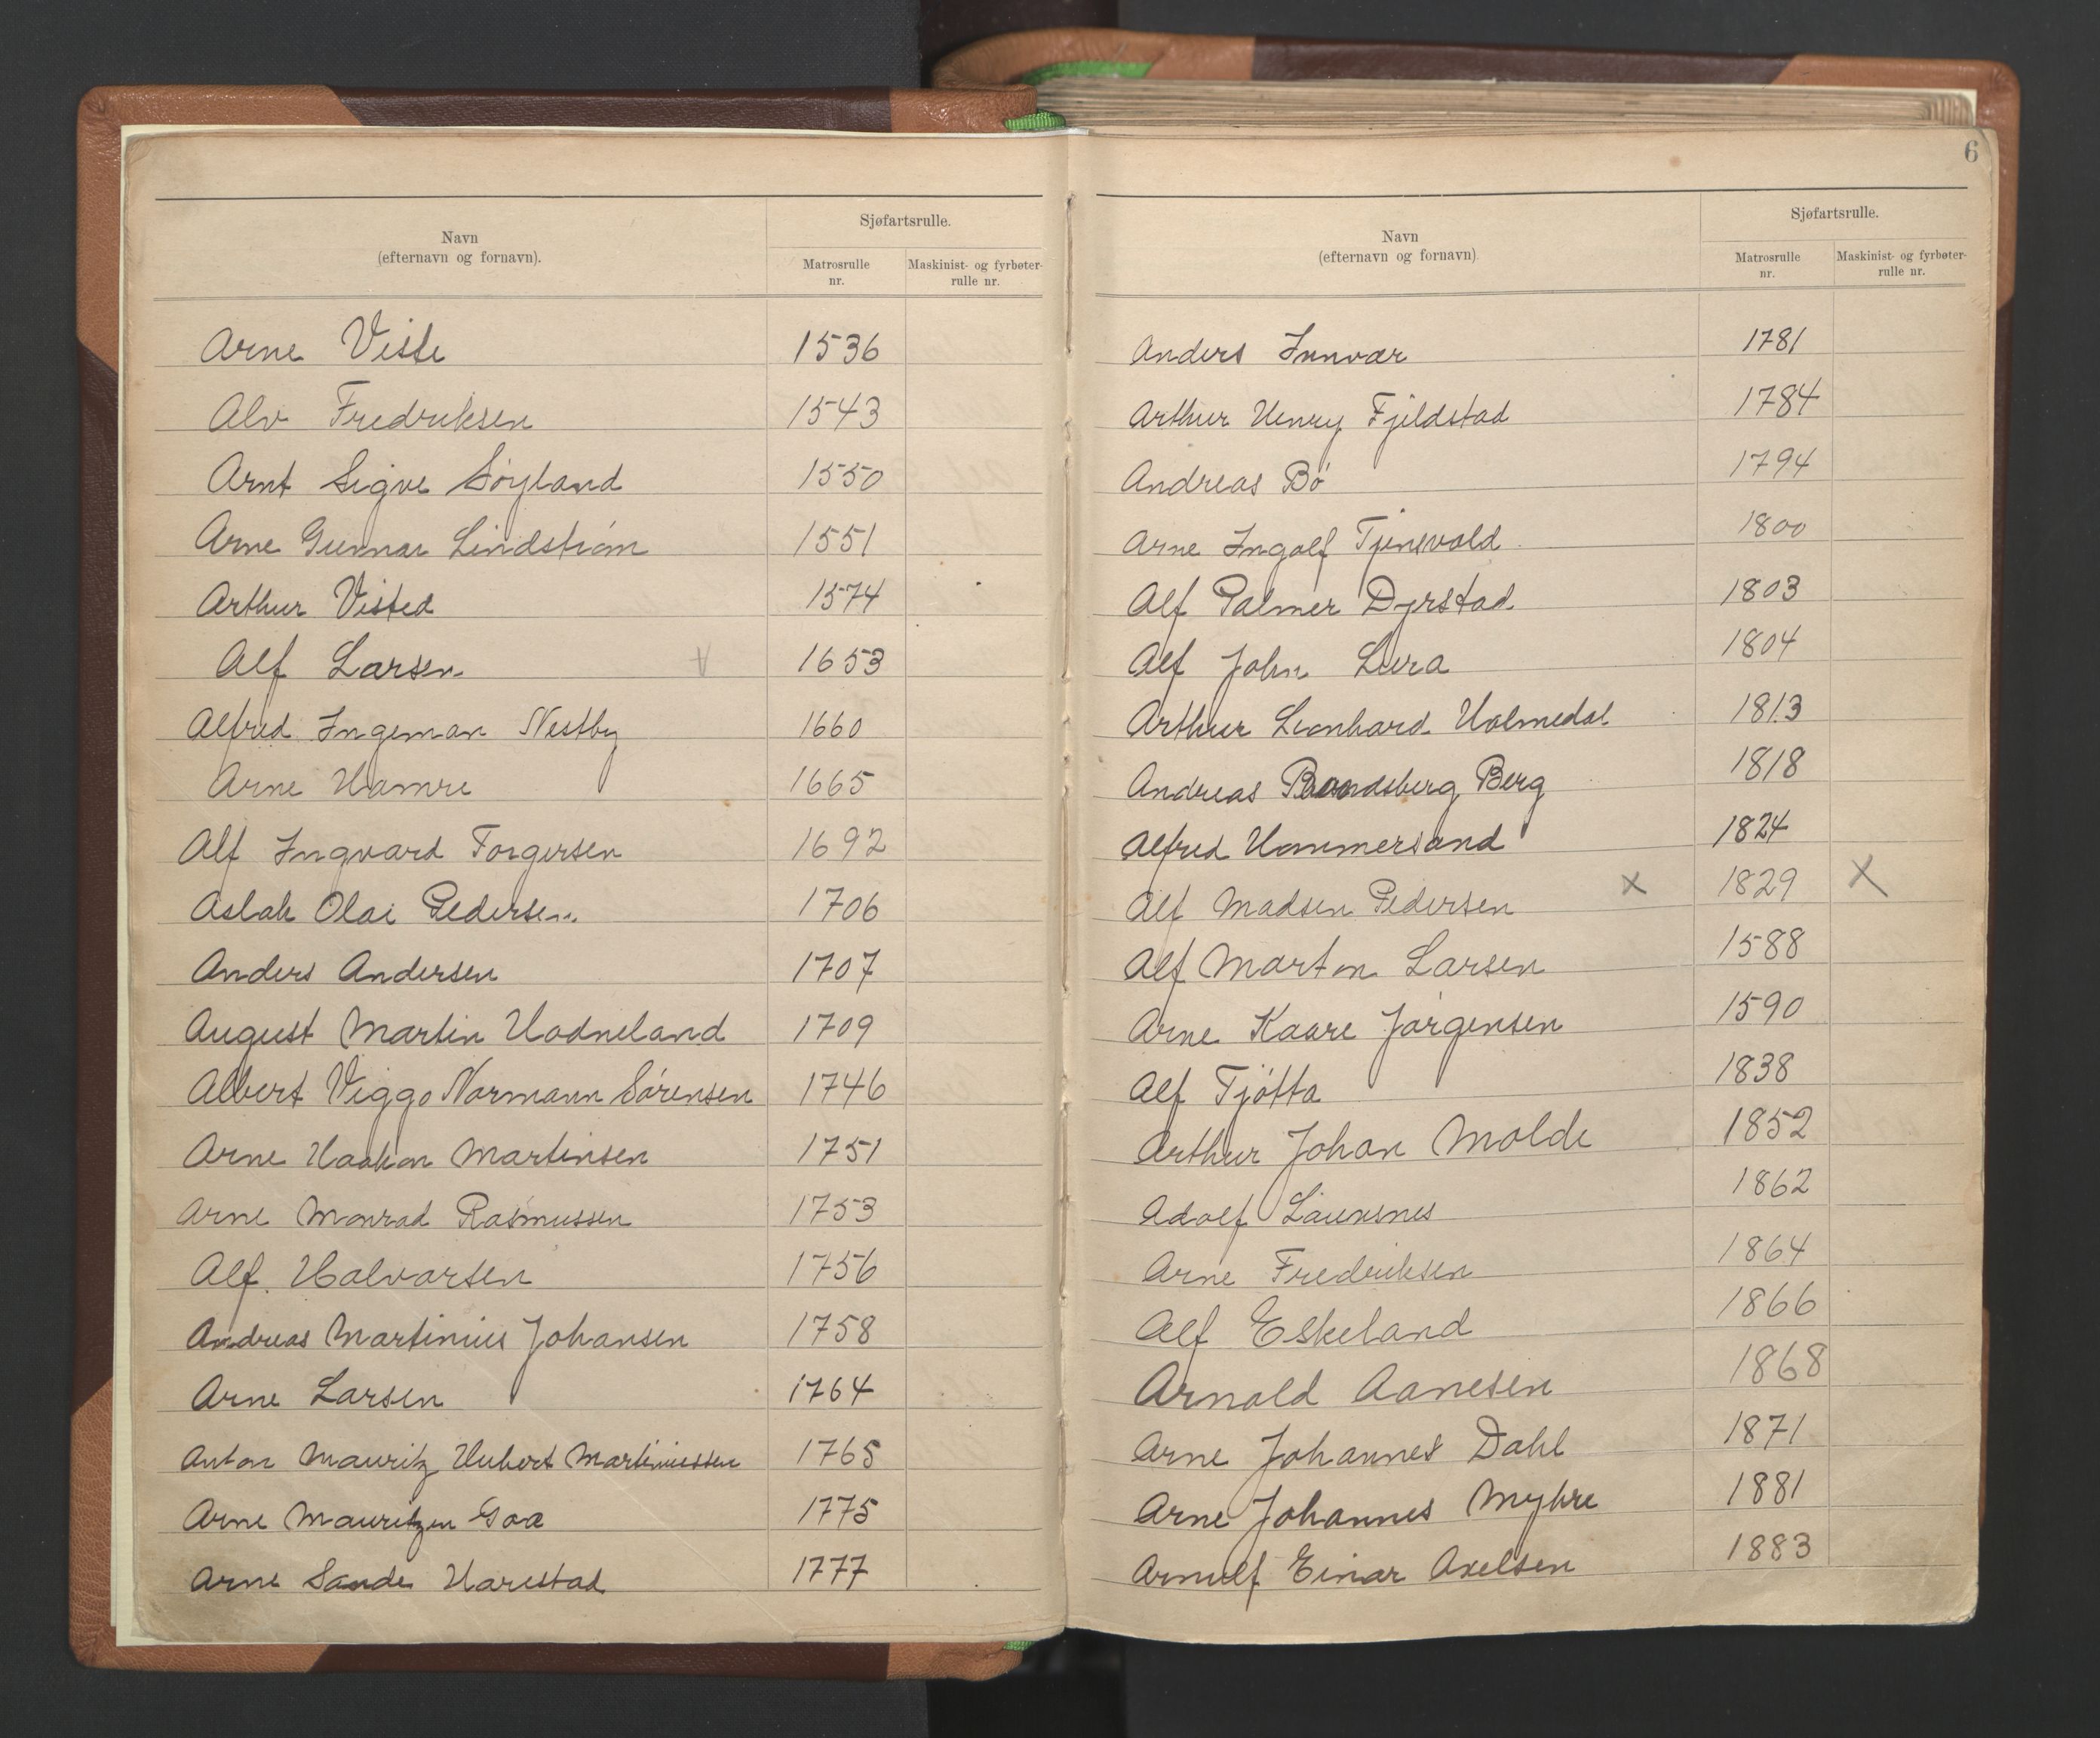 Navn
(efternavn og fornavn).
Sjøfartsrulle.
Matrosrulle
nr.
Maskinist- og fyrbøter-
rulle nr.
Arne Viste 1536
Alv Fredriksen 1543
Arnt Sigve Söyland 1550
Arne Gunnar Lindström 1551
Arthur Visted 1574
Alf Larsen 1653
Alfred Ingeman Nestby 1660
Arne Hamre 1665
Alf Ingvard Torgersen 1692
Aslak Olai Pedersen 1706
Anders Andersen 1707
August Martin Hodneland 1709
Albert Viggo Normann Sörensen 1746
Arne Haakon Martinsen 1751
Arne Monrad Rasmussen 1753
Alf Halvorsen 1756
Andreas Martinius Johansen 1758
Arne Larsen 1764
Anton Mauritz Hubert Martiniussen 1765
Arne Mauritzen Goa 1775
Arne Sande Harestad 1777
6
Navn
(efternavn og fornavn)
Sjøfartsrulle.
Matrosrulle
nr.
Maskinist- og fyrbøter-
rulle nr.
Anders Innvær 1781
Arthur Henry Fjeldstad 1784
Andreas Bö 1794
Arne Ingolf Tjensvold 1800
Alf Palmer Dyrstad 1803
Alf John Lura 1804
Arthur Leonhard Holmedal 1813
Andreas Berg 1818
Alfred Hommersand 1824
Alf Madsen Pedersen x 1829 x
Alf Marton Larsen 1588
Arne Kaare Jörgensen 1590
Alf Tjötta 1838
Arthur Johan Molde 1852
Adolf 1862
Arne Fredriksen 1864
Alf Eskeland 1866
Arnold Aanesen 1868
Arne Johannes Dahl 1871
Arne Johannes Myhre 1881
Arnulf Einar Axelsen 1883